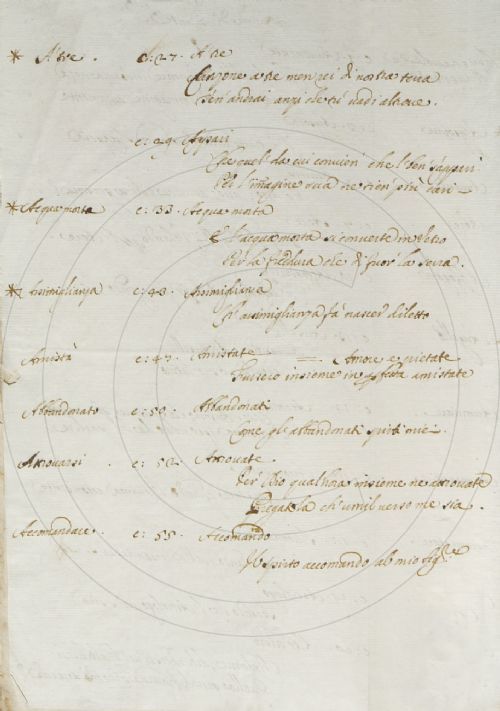 * A tre . c: 27. A tre
Canzone a tre men rei di nostra terra
Ten' andrai anzi che tu vadi altrove.
c: 29. Appari
Che quel' da cui convien che 'l ben s'appari
Per l'imagine sua ne sien' più cari
* Acqua morta c: 33. Acqua morta
E l'acqua morta si converte in vetro
Per la freddura che di fuor' la serra.
* Assimiglianza c: 43. Assimiglianza
assimiglianza fà nascer' diletto
Amistà c: 47. Amistate = Amore e pietate
Fussero insieme in perfetta amistate
Abbandonato c: 50. Abbandonati
Come gl'abbandonati spirti miei.
Arrovarsi c: 52. Arrovate.
Per Dio qualhora insieme ne arrovate
Pregatela ch'umil verso me sia.
Accomandare. c: 55. Accomando
spirto accomando al mio Sig.re